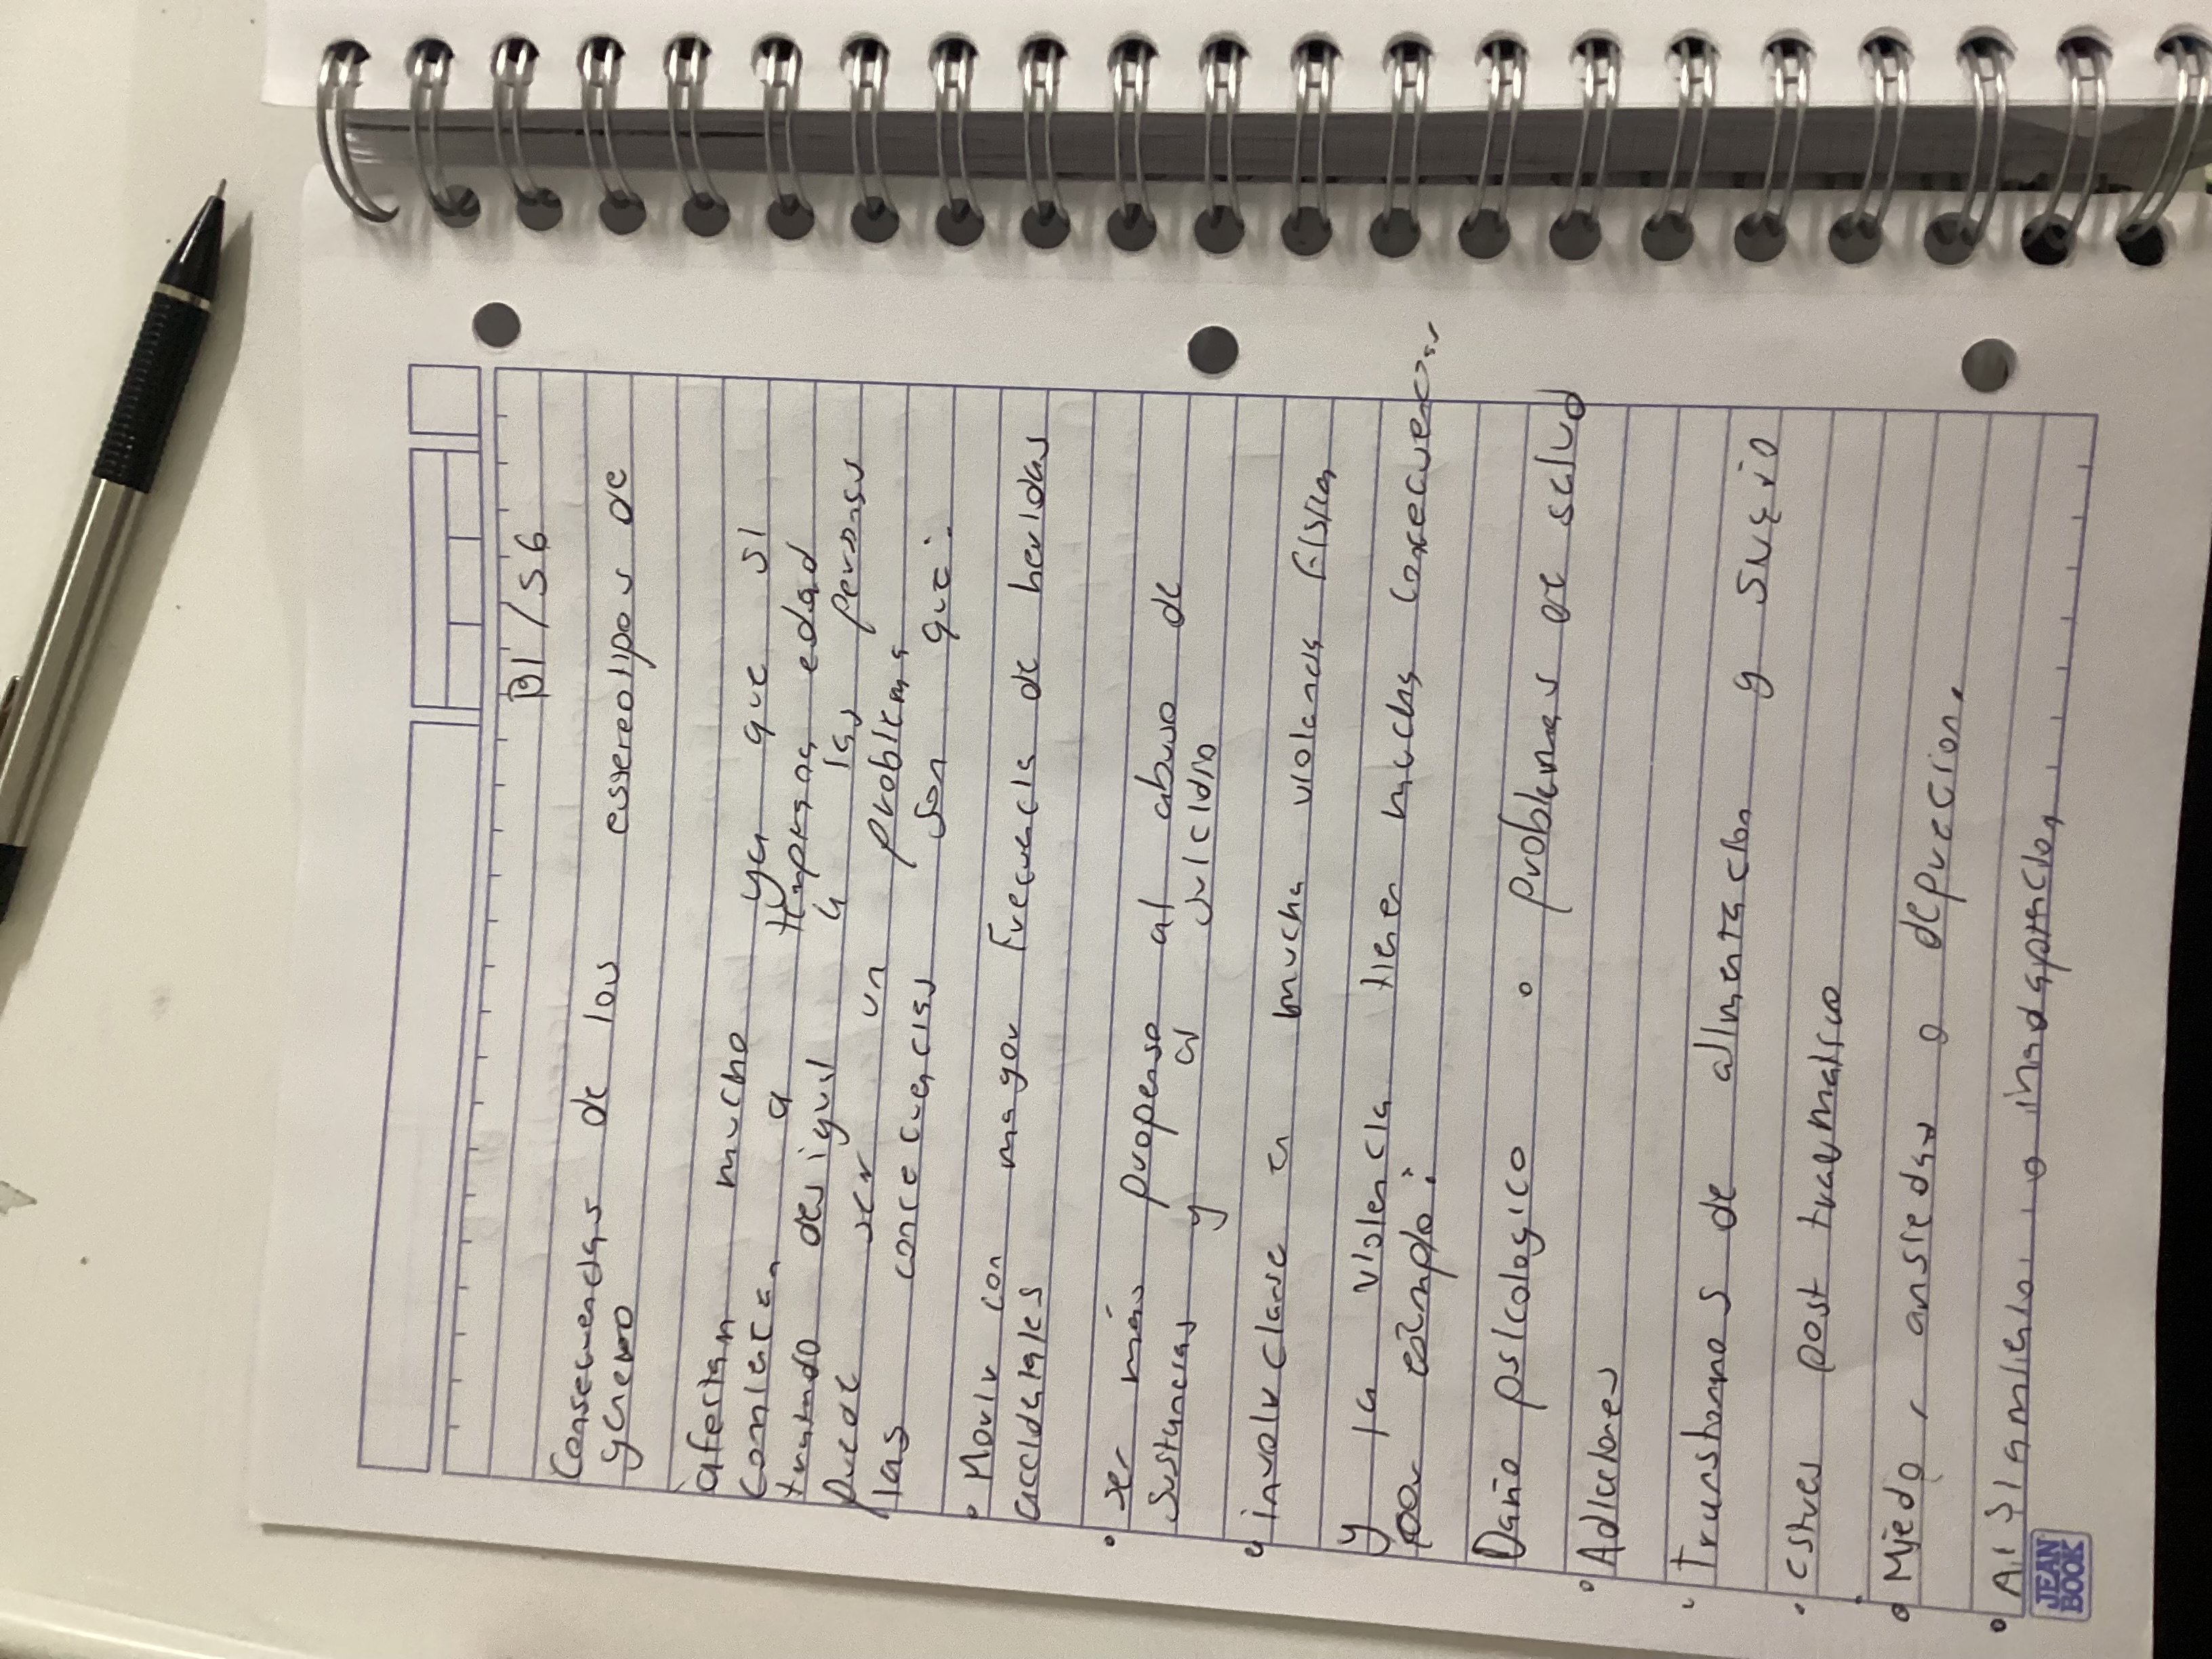 B1/S6
Consecuencias de los estereotipos de
genero
afectan mucho ya que si
comienzan a temprana edad
trantado desigual a las personas
puede ser un problema
las concecuencias son que:
• Morir con mayor frecuencia de heridas
accidentales
• ser más propenso al abuso de
sustancias y al suicidio
• involuclarse en mucha violencia fisica
y la violencia tienen muchas
por ejemplo:
Daño psicologico • problemas de salud
• Adicciones
• transtornos de alimentación y sueño
• estres post traumatico
• Miedo, ansiedad o
• Aislamiento o
JEAN
BOOK